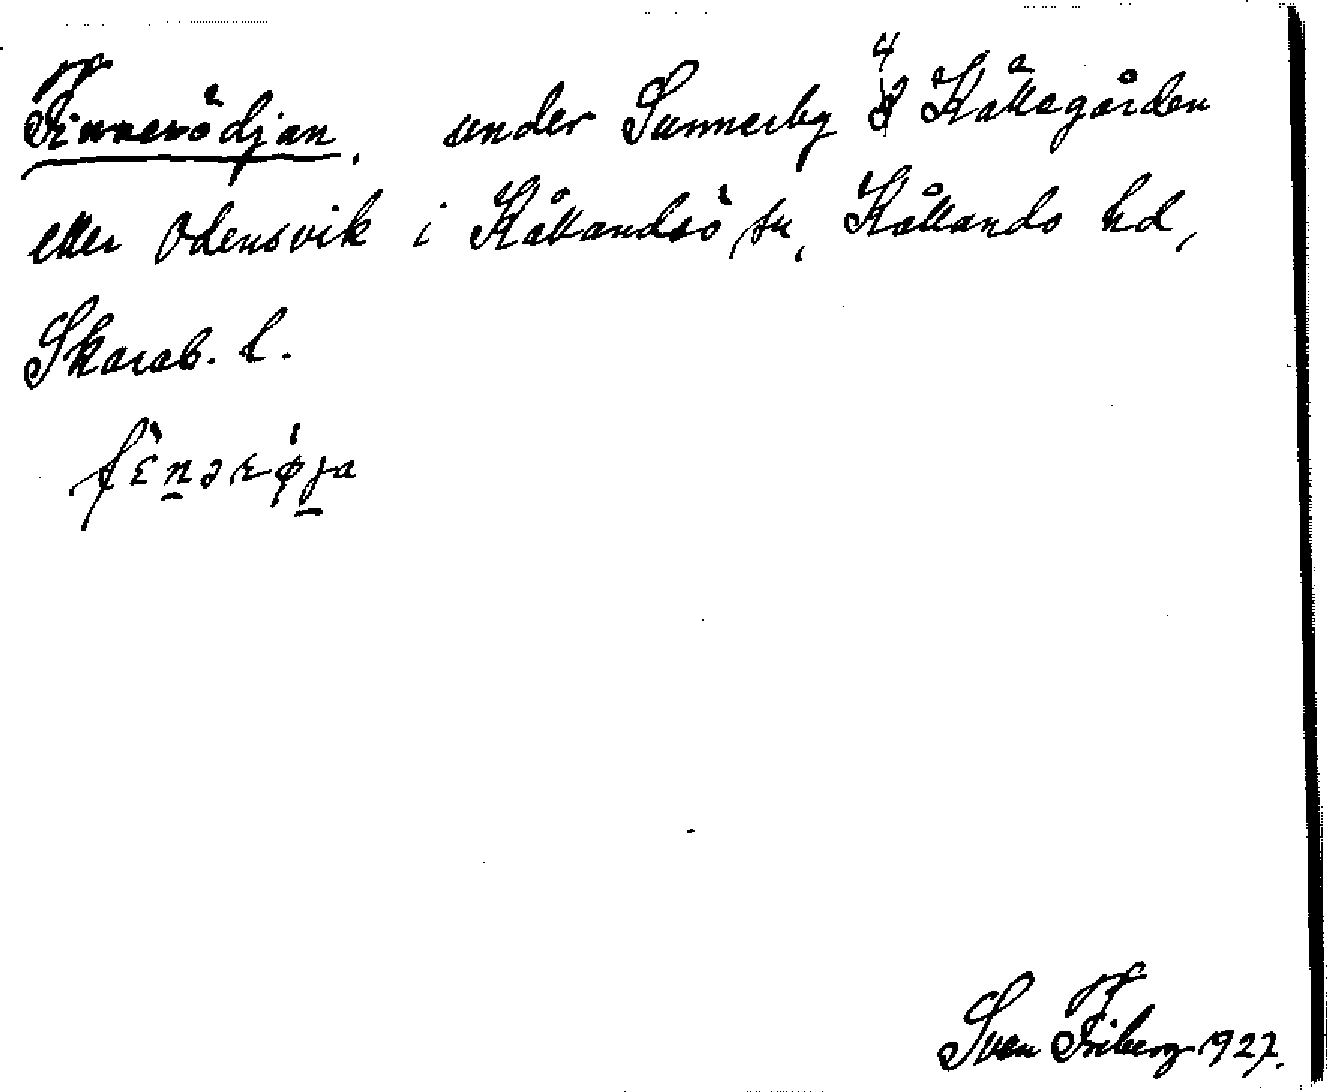 Finnerödjan, under Sunnerby 4 Källegården
eller Odensvik i Kållandsö sn, Kållands hd,
Skarab. l.
fὲnərø̀ja
Sven Friberg 1927.